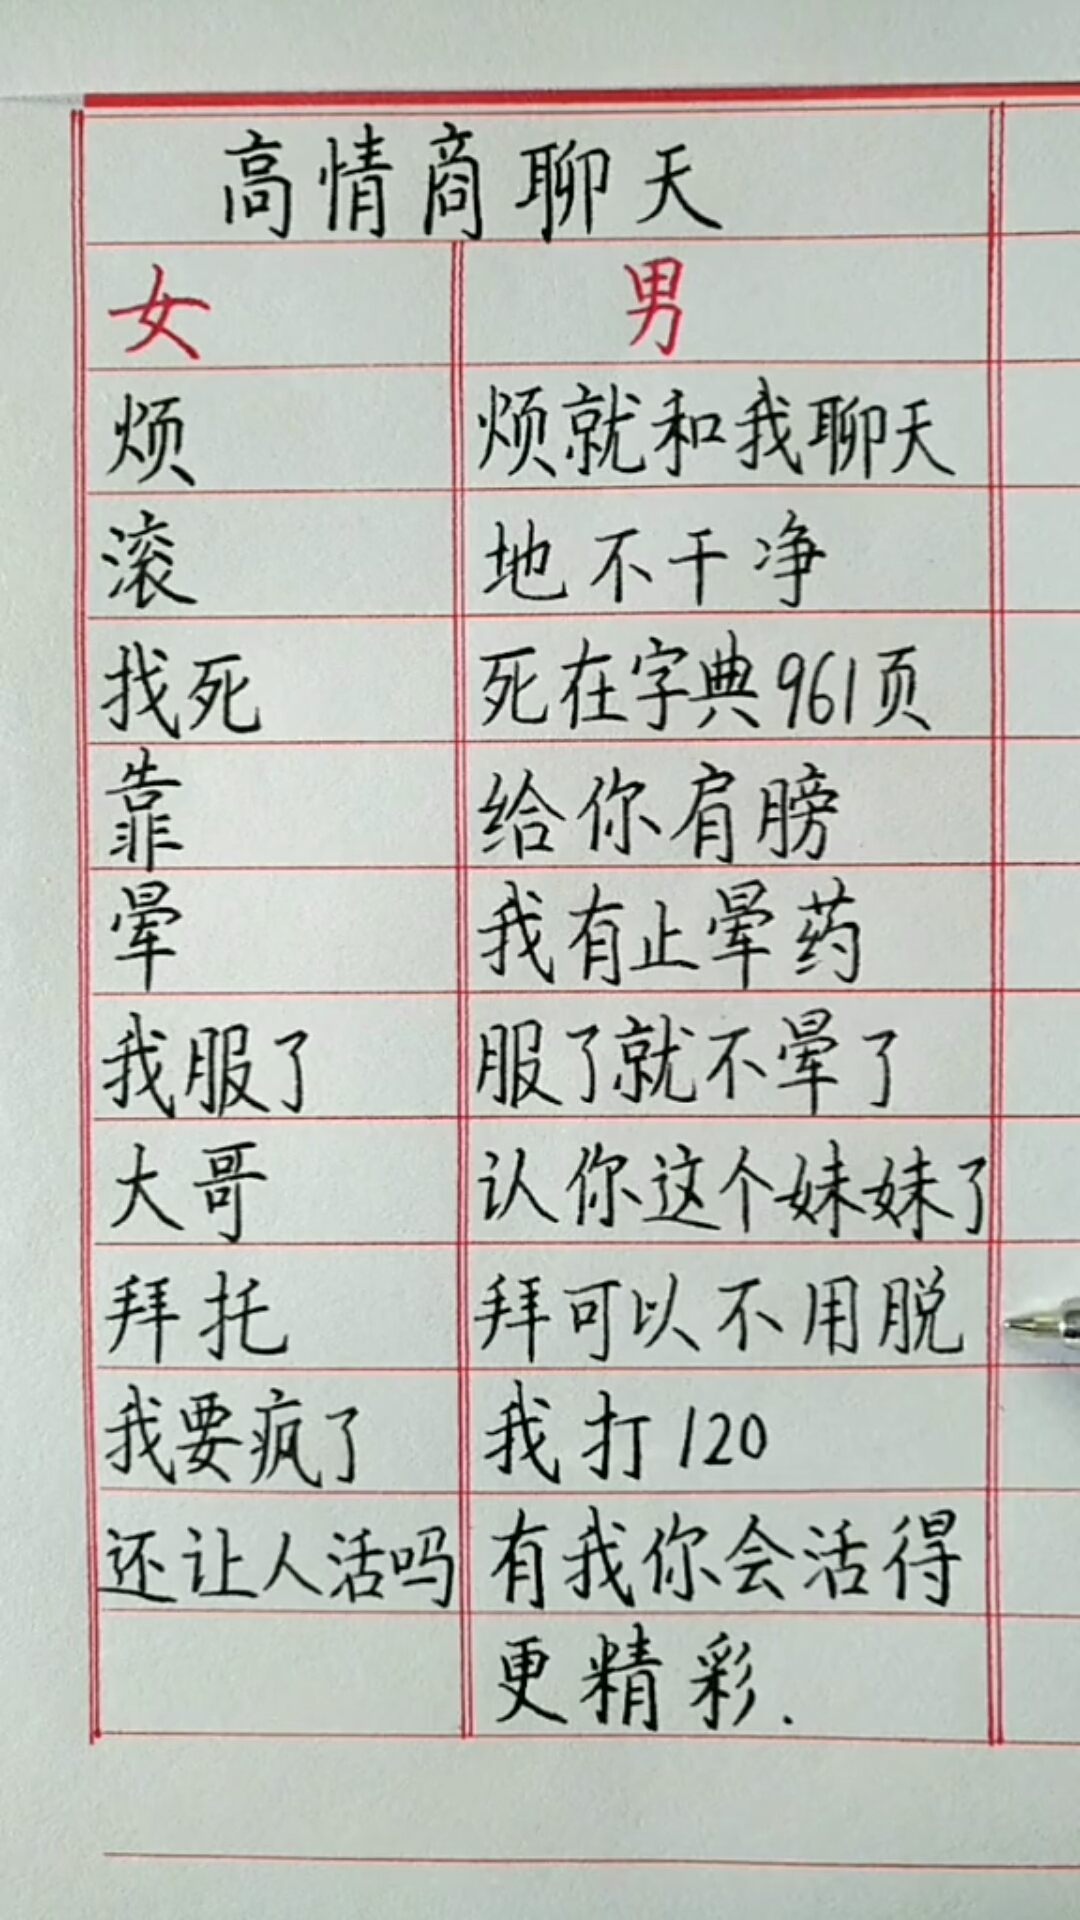 高情商聊天
女 男
烦 烦就和我聊天
滚 地不干净
找死 死在字典961页
靠 给你肩膀
晕 我有止晕药
我服了 服了就不晕了
大哥 认你这个妹妹了
拜托 拜可以不用脱
我要疯了 我打120
还让人活吗 有我你会活得
更精彩.